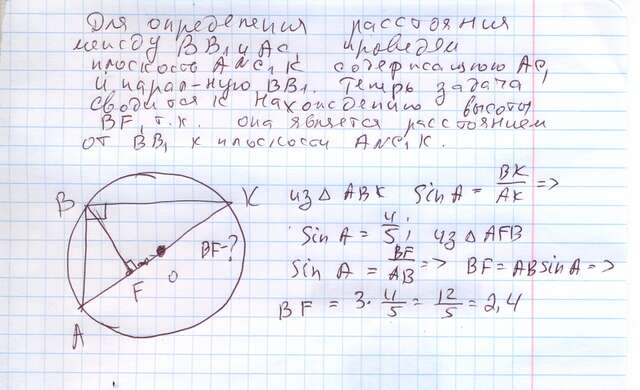 Для определения расстояния
между BB₁ и AC₁ проведём
плоскость ANC₁K содержащую AC₁
и парал-ную BB₁. Теперь задача
сводится к нахождению высоты
BF, т.к. она является расстоянием
от BB₁ к плоскости ANC₁K.
из △ ABK sin A = BK/AK =>
sin A = 4/5; из △ AFB
sin A = BF/AB => BF = AB sin A =>
BF = 3·4/5 = 12/5 = 2,4
B
K
BF-?
F
O
A